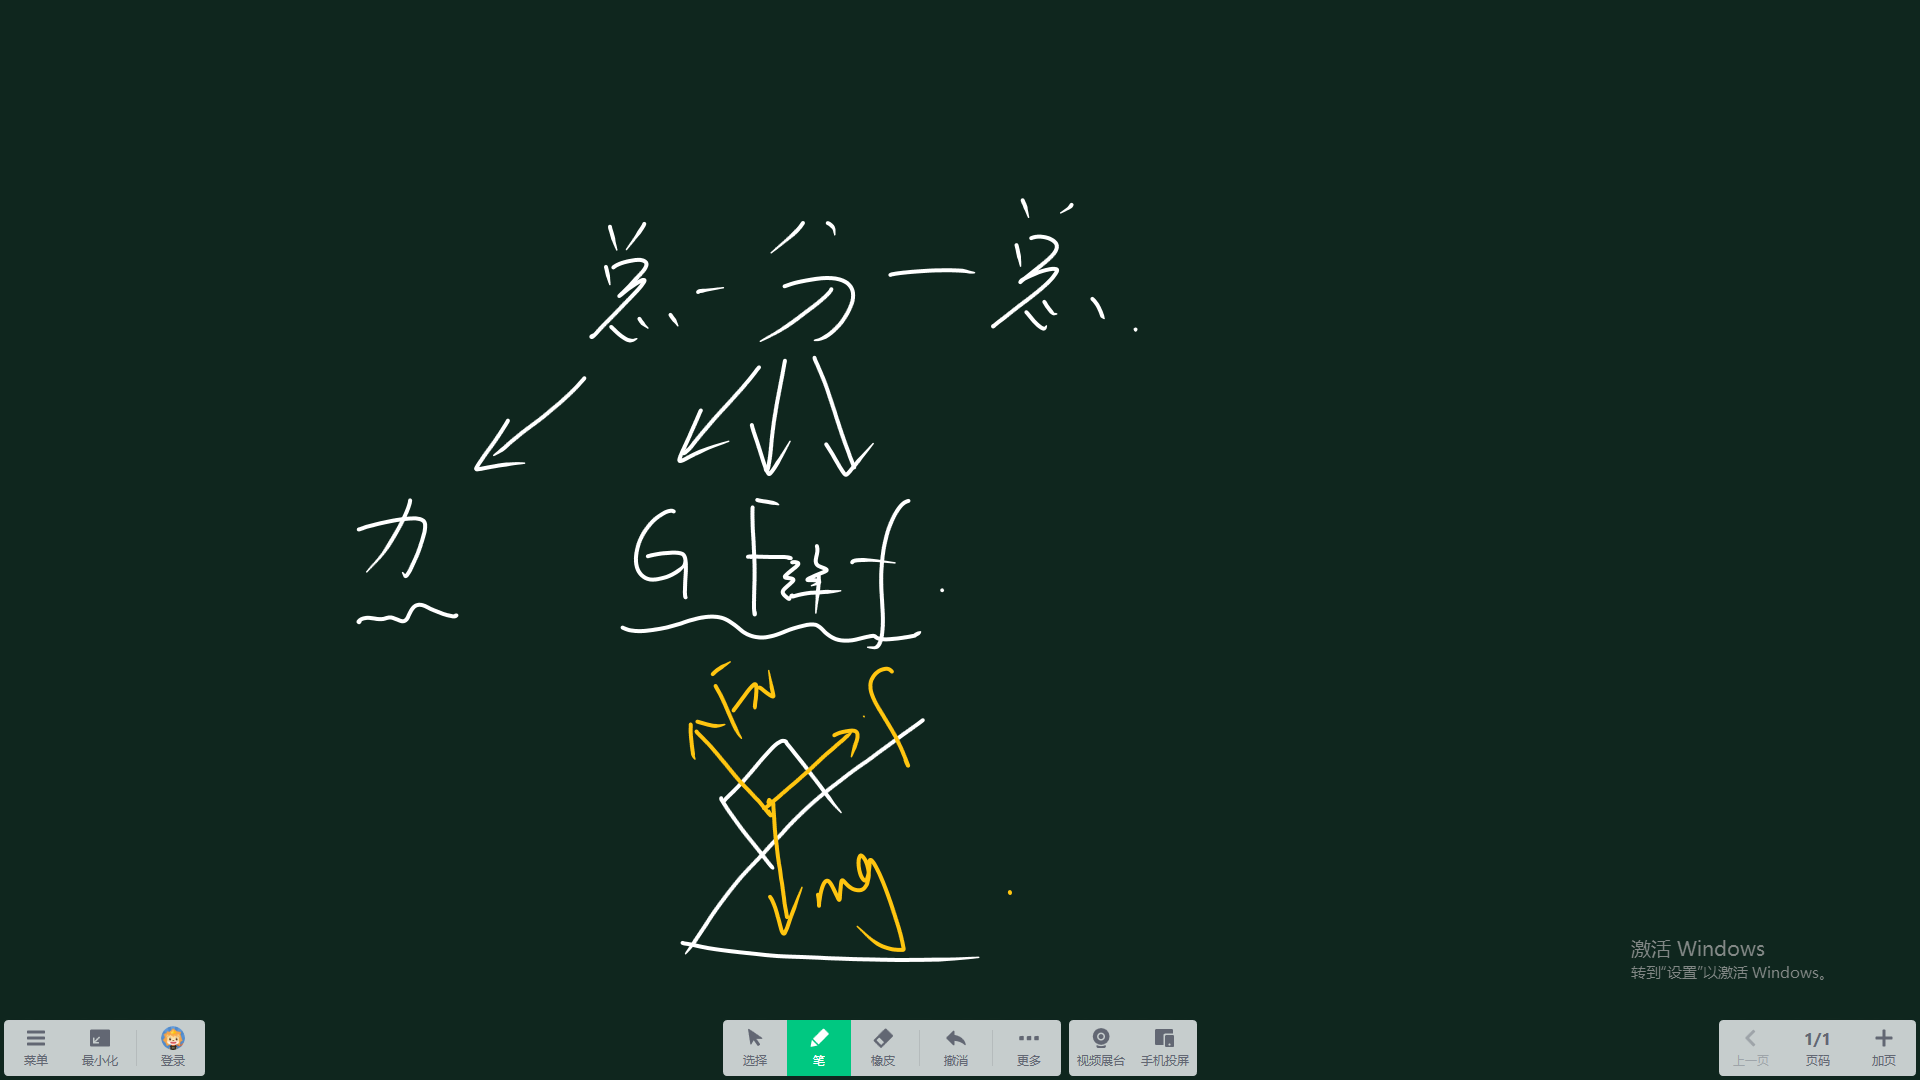 总-分一总
力 G F弹 f
FN f
mg
激活 Windows
转到“设置”以激活 Windows。
菜单 最小化 登录 选择 笔 橡皮 撤消 更多 视频展台 手机投屏 上一页 1/1 页码 加页